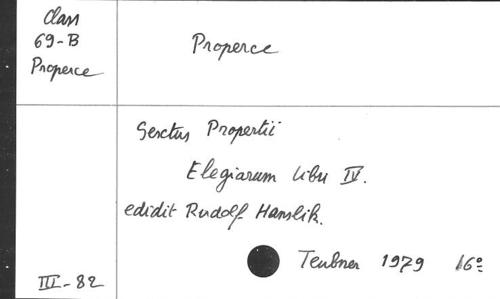 Class
69-B
Properce
Properce
Sextus Propertii
Elegiarum libri IV.
edidit Rudolf Hanslik.
Teubner 1979 16°
III-82